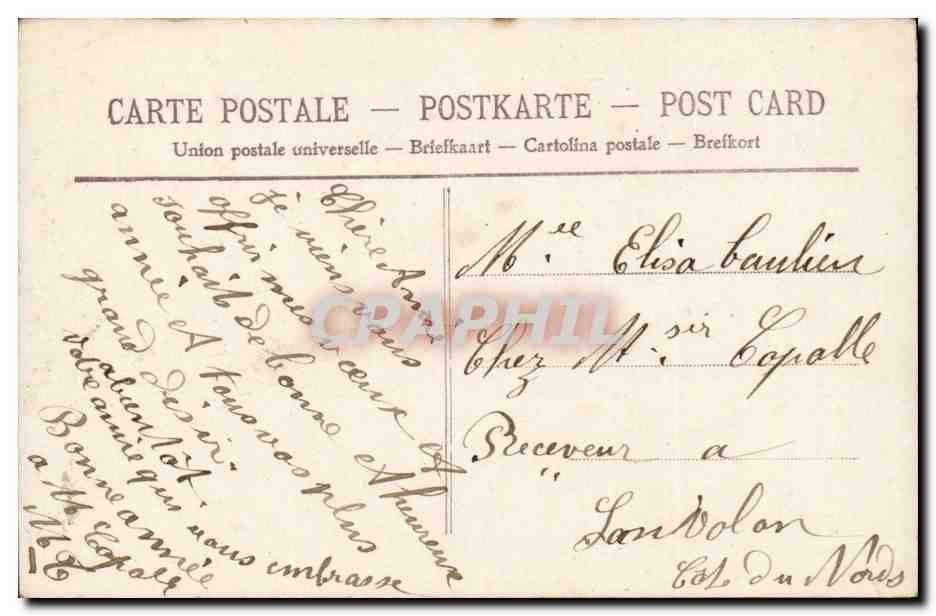 CARTE POSTALE — POSTKARTE — POST CARD
Union postale universelle — Briefkaart — Cartolina postale — Brefkort
Chère Amie
je viens vous
offrir mes vœux et
souhait de bonne et heureux
année et tous vos plus
grand désir.
a bientôt
votre amie qui vous embrasse
Bonne année
a M Copalle
M C
Mlle. Elisa Caulien
Chez M. sir Copalle
Receveur a
Lanvolon
Cot du Nords
CPAPHIL